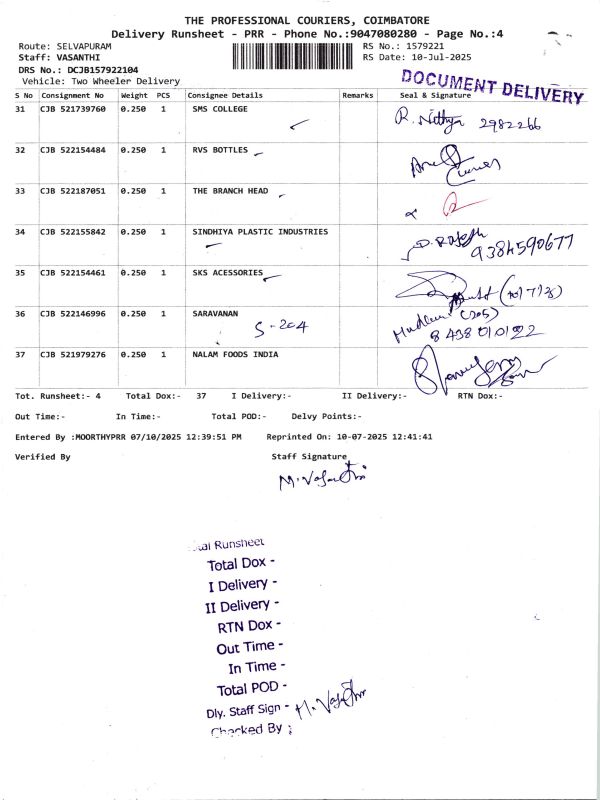 THE PROFESSIONAL COURIERS, COIMBATORE
Delivery Runsheet - PRR - Phone No.:9047080280 - Page No.:4
Route: SELVAPURAM
RS No.: 1579221
Staff: VASANTHI
RS Date: 10-Jul-2025
DRS No.: DCJB157922104
Vehicle: Two Wheeler Delivery
DOCUMENT DELIVERY
S No Consignment No Weight PCS Consignee Details Remarks Seal & Signature
31 CJB 521739760 0.250 1 SMS COLLEGE R. Nithya 2982266
32 CJB 522154484 0.250 1 RVS BOTTLES
33 CJB 522187051 0.250 1 THE BRANCH HEAD
34 CJB 522155842 0.250 1 SINDHIYA PLASTIC INDUSTRIES D. Rajesh 9384590677
35 CJB 522154461 0.250 1 SKS ACESSORIES
36 CJB 522146996 0.250 1 SARAVANAN (205)
S-204 8438010122
37 CJB 521979276 0.250 1 NALAM FOODS INDIA
Tot. Runsheet:- 4 Total Dox:- 37 I Delivery:- II Delivery:- RTN Dox:-
Out Time:- In Time:- Total POD:- Delvy Points:-
Entered By :MOORTHYPRR 07/10/2025 12:39:51 PM Reprinted On: 10-07-2025 12:41:41
Verified By Staff Signature
M. Vasanthi
Runsheet
Total Dox -
I Delivery -
II Delivery -
RTN Dox -
Out Time -
In Time -
Total POD -
Dly. Staff Sign - M. Vasanthi
Checked By :